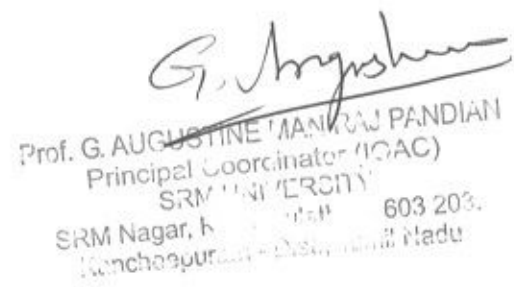 G. Augustine
Prof. G. AUGUSTINE MANIRAJ PANDIAN
Principal Coordinator (IQAC)
SRM UNIVERSITY
SRM Nagar, 603 203.
Kancheepuram Tamil Nadu